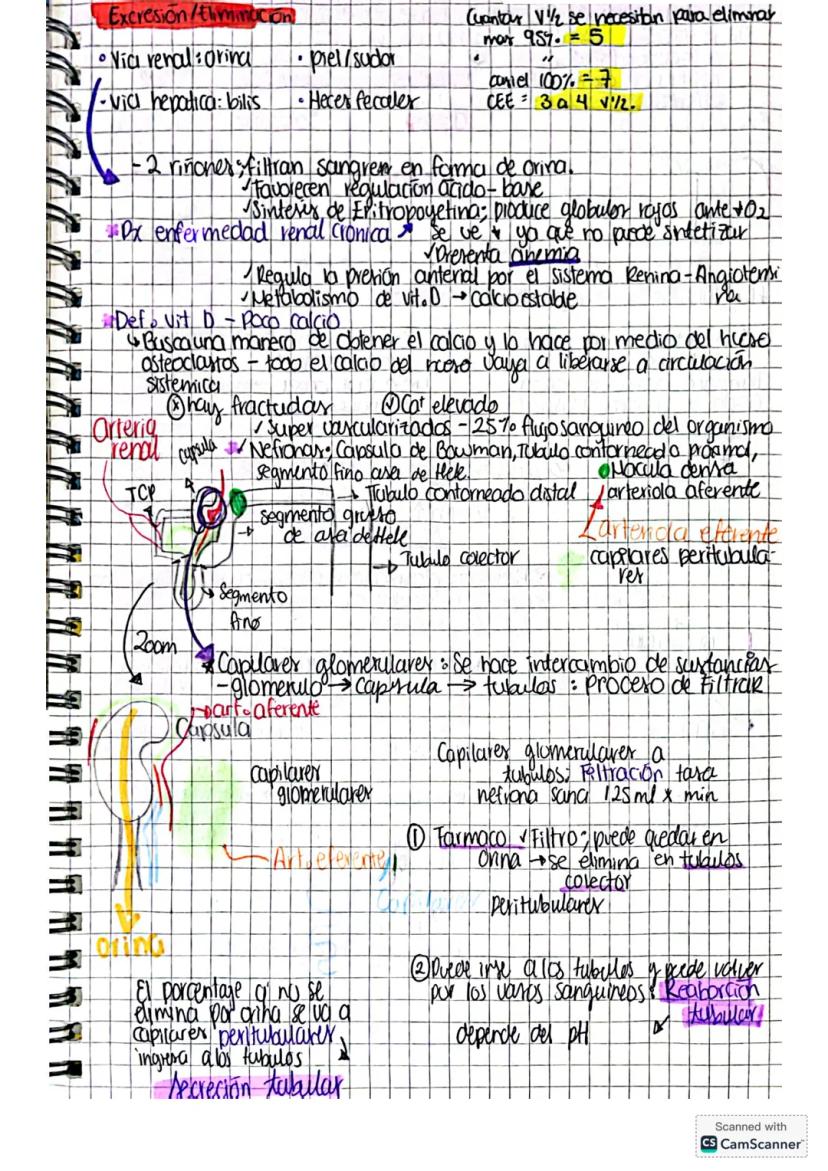 Excresión/Eliminación
Cuantas V½ se necesitan para eliminar
mas 95% = 5
"
casi el 100% = 7
CEE = 3 a 4 v½.
• Vía renal: orina
• piel/sudor
• vía hepatica: bilis
• Heces fecales
- 2 riñones; filtran sangre en forma de orina.
✓ Favorecen regulación ácido-base
✓ Sintesis de Eritropoyetina; produce globulos rojos ante ↓O2
* Px enfermedad renal crónica ↗ se ve ↓ ya que no puede sintetizar
✓ Presenta anemia
✓ Regula la presión arterial por el sistema Renina-Angiotensi
na
✓ Metabolismo de vit. D → calcio estable
* Def. vit D - Poco calcio
↳ Busca una manera de obtener el calcio y lo hace por medio del hueso
osteoclastos - todo el calcio del hueso vaya a liberarse a circulación
sistemica
ⓧ hay fracturas
Ca+ elevado
✓ Super vascularizados - 25% flujo sanguineo del organismo
Arteria
renal
capsula
Nefronas; Capsula de Bowman, Tubulo contorneado proximal,
segmento fino asa de Hele.
Macula densa
TCP
→ Tubulo contorneado distal
arteriola aferente
segmento grueso
de asa de Hele
arteriola eferente
→ Tubulo colector
capilares peritubula-
res
Segmento
fino
Zoom
* Capilares glomerulares: Se hace intercambio de sustancias
- glomerulo → capsula → tubulos : proceso de filtrar
→ art. aferente
Capsula
capilares
glomerulares
Capilares glomerulares a
tubulos; Filtración tasa
nefrona sana 125ml x min
① Farmaco ✓ Filtro; puede quedar en
orina → se elimina en tubulos
colector
Art. eferente
Peritubulares
orina
② Puede irse a los tubulos y puede volver
por los vasos sanguineos: Reaborción
tubular
depende del pH
El porcentaje q' no se
elimina por orina se va a
capilares peritubulares
ingresa a los tubulos
Secreción tubular
Scanned with
CS CamScanner